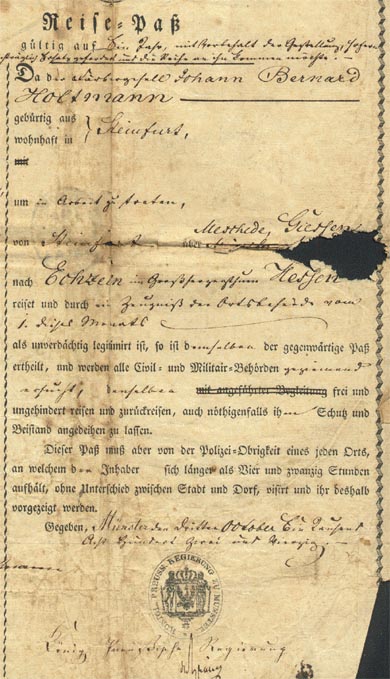 Reise-Paß
gültig auf Ein Jahr, mit Vorbehalt der Gestellung,
Da der Johann Bernard
Holtmann
gebürtig aus
wohnhaft in } Steinfurt,
mit
um in Arbeit zu treten,
Meschede, Giessen
von Steinfurt über
nach Echzein im Großherzogthum Hessen
reiset und durch ein Zeugniß der Ortsbehörde vom
1. dieses Monats
als unverdächtig legitimirt ist, so ist demselben der gegenwärtige Paß
ertheilt, und werden alle Civil- und Militair-Behörden geziemend
ersucht, denselben mit angeführter Begleitung frei und
ungehindert reisen und zurückreisen, auch nöthigenfalls ihm Schutz und
Beistand angedeihen zu lassen.
Dieser Paß muß aber von der Polizei-Obrigkeit eines jeden Orts,
an welchem der Inhaber sich länger als Vier und zwanzig Stunden
aufhält, ohne Unterschied zwischen Stadt und Dorf, visirt und ihr deshalb
vorgezeigt werden.
Gegeben, Münster den Dritten October Ein Tausend
Acht Hundert Zwei und Vierzig
KÖNIGL. PREUSS. REGIERUNG ZU MÜNSTER
König Preußische Regierung